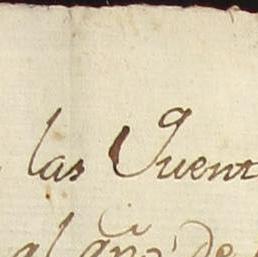 las Quent
al año de